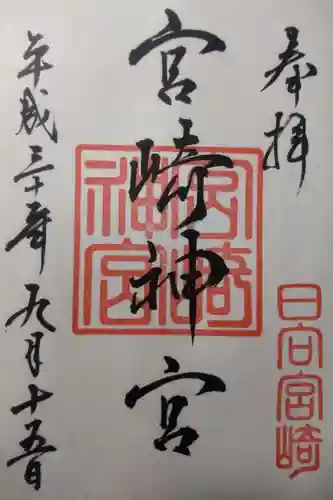 奉拝
日向宮崎
宮崎神宮
宮崎神宮
平成三十年九月十五日